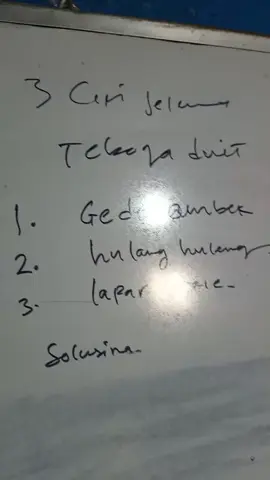 3 Ciri jelema
Teboga duit
1. Gede ambek
2. hulang huleng
3. lapar
Solusina